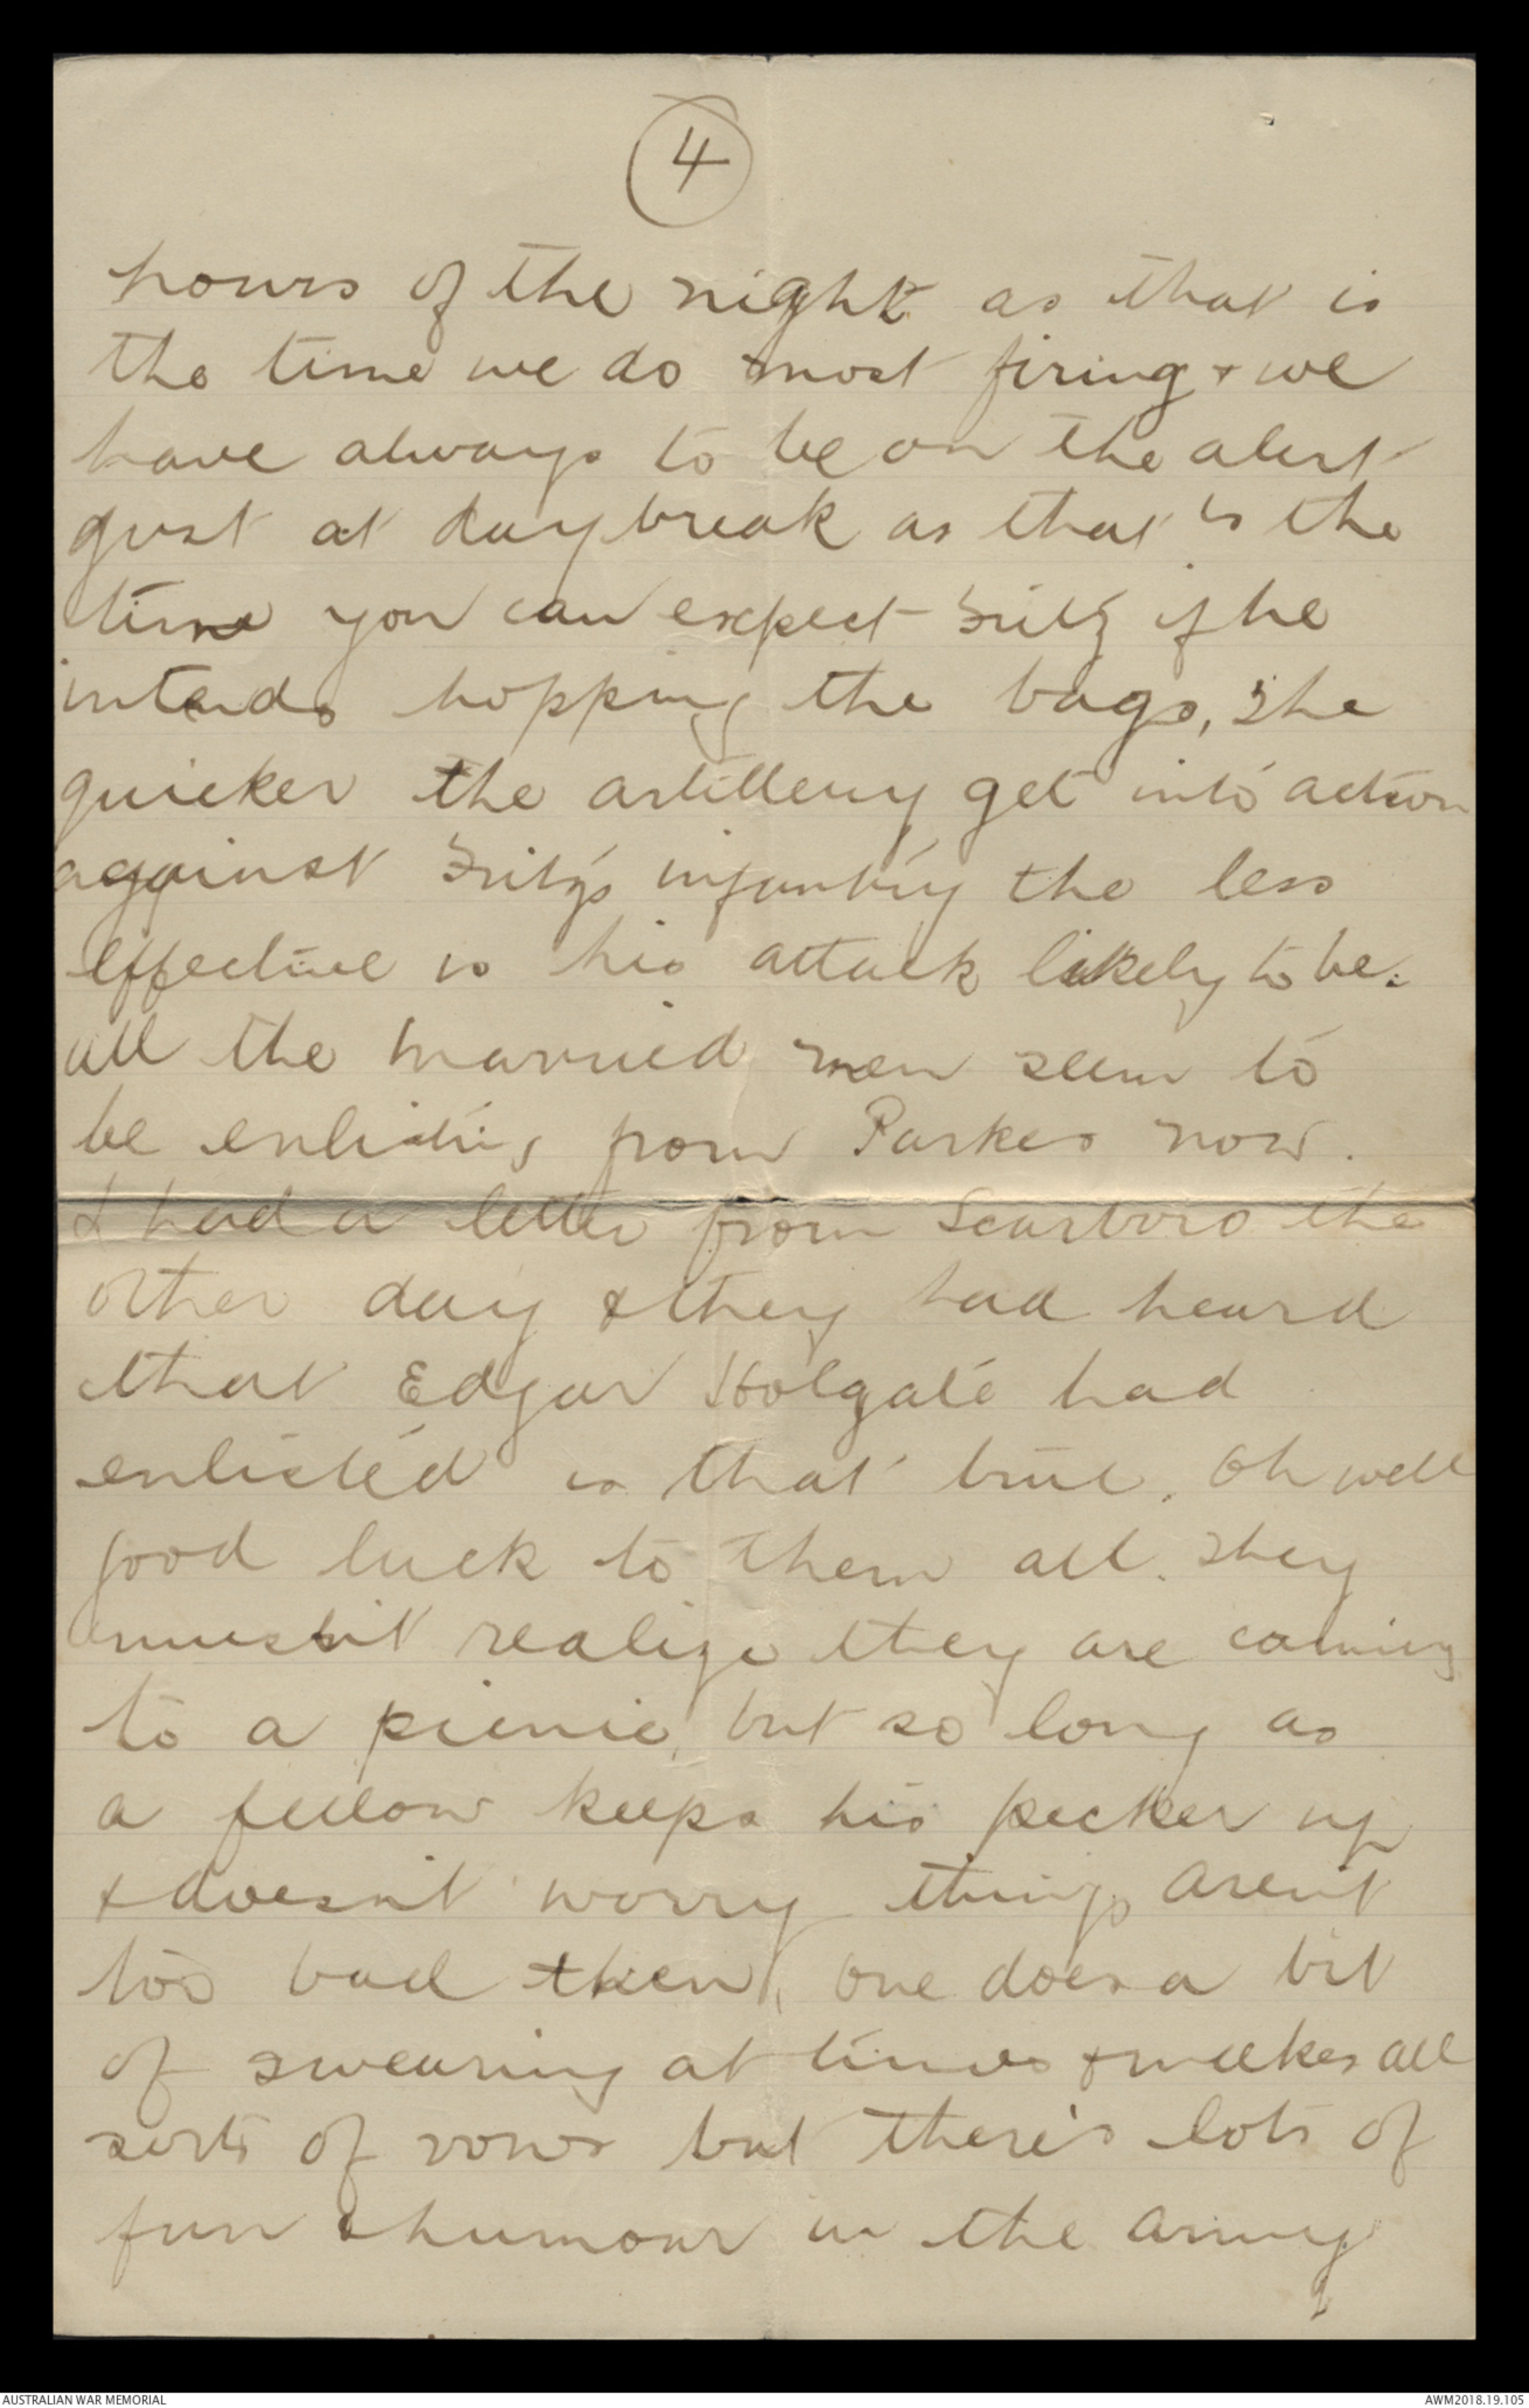 4
hours of the night as that is
the time we do most firing & we
have always to be on the alert
just at daybreak as that is the
time you can expect Fritz if he
intends hopping the bags, The
quicker the artillery get into action
against Fritz's infantry the less
effective is his attack likely to be.
all the married men seem to
be enlisting from Parkes now.
I had a letter from Scarboro the
other day & they had heard
that Edgar Holgate had
enlisted is that true. Oh well
good luck to them all. They
mustn't realize they are coming
to a picnic, but so long as
a fellow keeps his pecker up
& doesn't worry things aren't
too bad then, one does a bit
of swearing at times & makes all
sorts of vows but there's lots of
fun & humour in the army
AUSTRALIAN WAR MEMORIAL
AWM2018.19.105